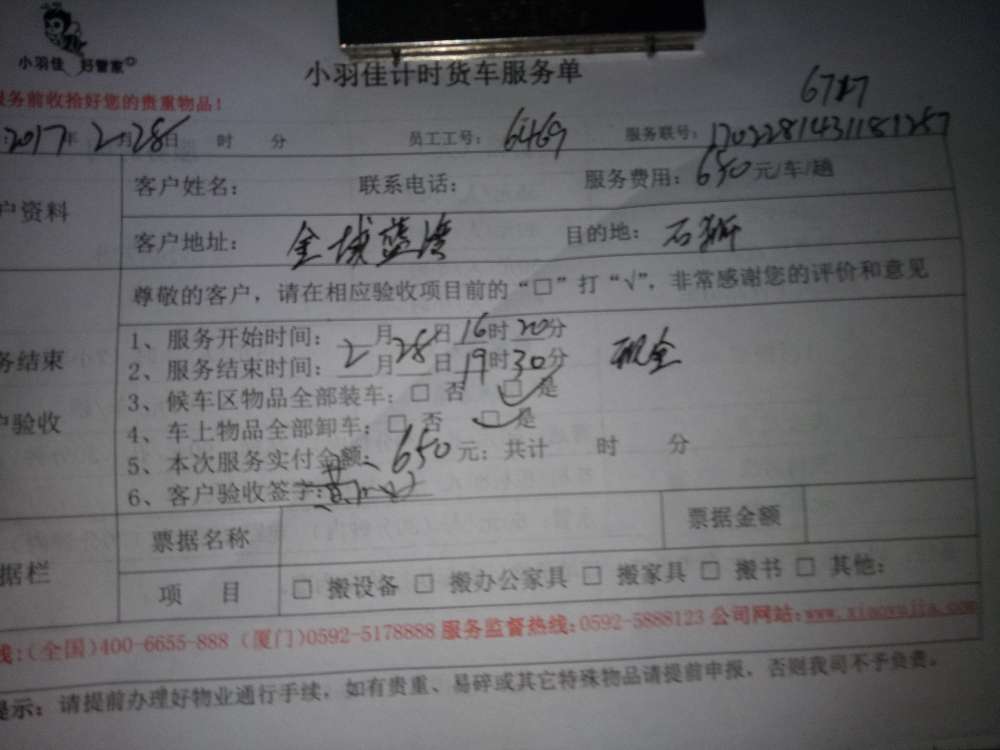 小羽佳 好管家
小羽佳计时货车服务单
务前收拾好您的贵重物品!
6727
2017年2月28日 时 分 员工工号: 6469 服务联号: 1702281431181257
户资料
客户姓名: 联系电话: 服务费用: 650元/车/趟
客户地址: 金域蓝湾 目的地: 石狮
尊敬的客户,请在相应验收项目前的“□”打“√”,非常感谢您的评价和意见
务结束
户验收
1、服务开始时间: 2月28日16时20分
2、服务结束时间: 月 日19时30分 现金
3、候车区物品全部装车: □ 否 ☑ 是
4、车上物品全部卸车: □ 否 ☑ 是
5、本次服务实付金额: 650元; 共计 时 分
6、客户验收签字:
据栏
票据名称 票据金额
项 目 □ 搬设备 □ 搬办公家具 □ 搬家具 □ 搬书 □ 其他:
线:(全国)400-6655-888 (厦门)0592-5178888 服务监督热线:0592-5888123 公司网站:www.xiaoyujia.com
提示: 请提前办理好物业通行手续,如有贵重、易碎或其它特殊物品请提前申报,否则我司不予负责。